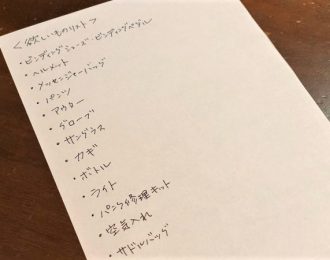 <欲しいものリスト>
・ビンディングシューズ・ビンディングペダル
・ヘルメット
・メッセンジャーバッグ
・パンツ
・アウター
・グローブ
・サングラス
・カギ
・ボトル
・ライト
・パンク修理キット
・空気入れ
・サドルバッグ